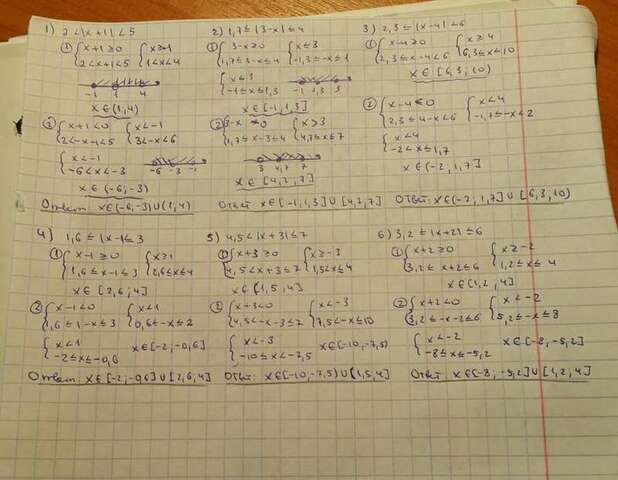 1) 2<|x+1|<5
① { x+1≥0 { x≥-1
2<x+1<5 1<x<4
-1 1 4
x∈(1,4)
② { x+1<0 { x<-1
2<-x-1<5 3<-x<6
{ x<-1
-6<x<-3 -6 -3 -1
x∈(-6,-3)
Ответ: x∈(-6,-3)∪(1,4)
2) 1,7≤|3-x|≤4
① { 3-x≥0 { x≤3
1,7≤3-x≤4 -1,3≤-x≤1
{ x≤3
-1≤x≤1,3 -1 1,3 3
x∈[-1,1,3]
② { 3-x<0 { x>3
1,7≤x-3≤4 4,7≤x≤7
3 4,7 7
x∈[4,7,7]
Ответ: x∈[-1,1,3]∪[4,7,7]
3) 2,3≤|x-4|<6
① { x-4≥0 { x≥4
2,3≤x-4<6 6,3≤x<10
x∈[6,3,10)
② { x-4<0 { x<4
2,3≤4-x<6 -1,7≤-x<2
{ x<4
-2<x≤1,7
x∈(-2,1,7]
Ответ: x∈(-2,1,7]∪[6,3,10)
4) 1,6≤|x-1|≤3
① { x-1≥0 { x≥1
1,6≤x-1≤3 2,6≤x≤4
x∈[2,6;4]
② { x-1<0 { x<1
1,6≤1-x≤3 0,6≤-x≤2
{ x<1 x∈[-2;-0,6]
-2≤x≤-0,6
Ответ: x∈[-2;-0,6]∪[2,6;4]
5) 4,5<|x+3|≤7
① { x+3≥0 { x≥-3
4,5<x+3≤7 1,5<x≤4
x∈(1,5;4]
② { x+3<0 { x<-3
4,5<-x-3≤7 7,5<-x≤10
{ x<-3 x∈[-10;-7,5)
-10≤x<-7,5
Ответ: x∈[-10;-7,5)∪(1,5;4]
6) 3,2≤|x+2|≤6
① { x+2≥0 { x≥-2
3,2≤x+2≤6 1,2≤x≤4
x∈[1,2;4]
② { x+2<0 { x<-2
3,2≤-x-2≤6 5,2≤-x≤8
{ x<-2 x∈[-8;-5,2]
-8≤x≤-5,2
Ответ: x∈[-8;-5,2]∪[1,2;4]